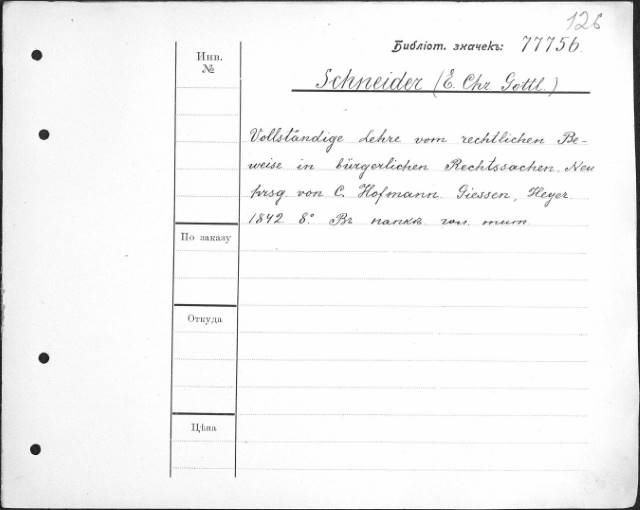 126
Библіот. значекъ: 77756.
Инв.
№
Schneider (E. Chr. Gottl.)
Vollständige Lehre vom rechtlichen Be-
weise in bürgerlichen Rechtssachen. Neu
hrsg. von C. Hofmann. Giessen, Heyer
1842 8.° Въ папкѣ
По заказу
Откуда
Цѣна